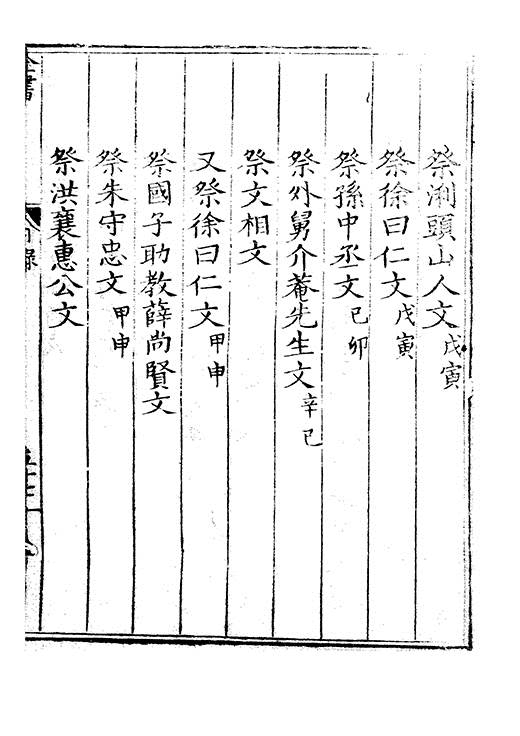 祭浰頭山人文戊寅
祭徐曰仁文戊寅
祭孫中丞文己卯
祭外舅介菴先生文辛巳
祭文相文
又祭徐曰仁文甲申
祭國子助教薛尚賢文
祭朱守忠文甲申
祭洪襄惠公文
全書
目錄